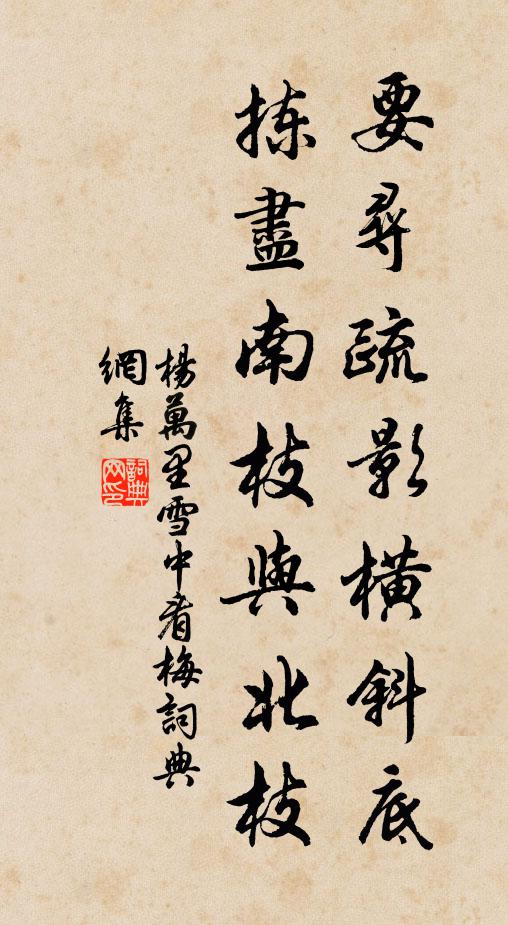 要尋疏影橫斜底
揀盡南枝與北枝
楊萬里雪中看梅詞典
網集
詞典
网印